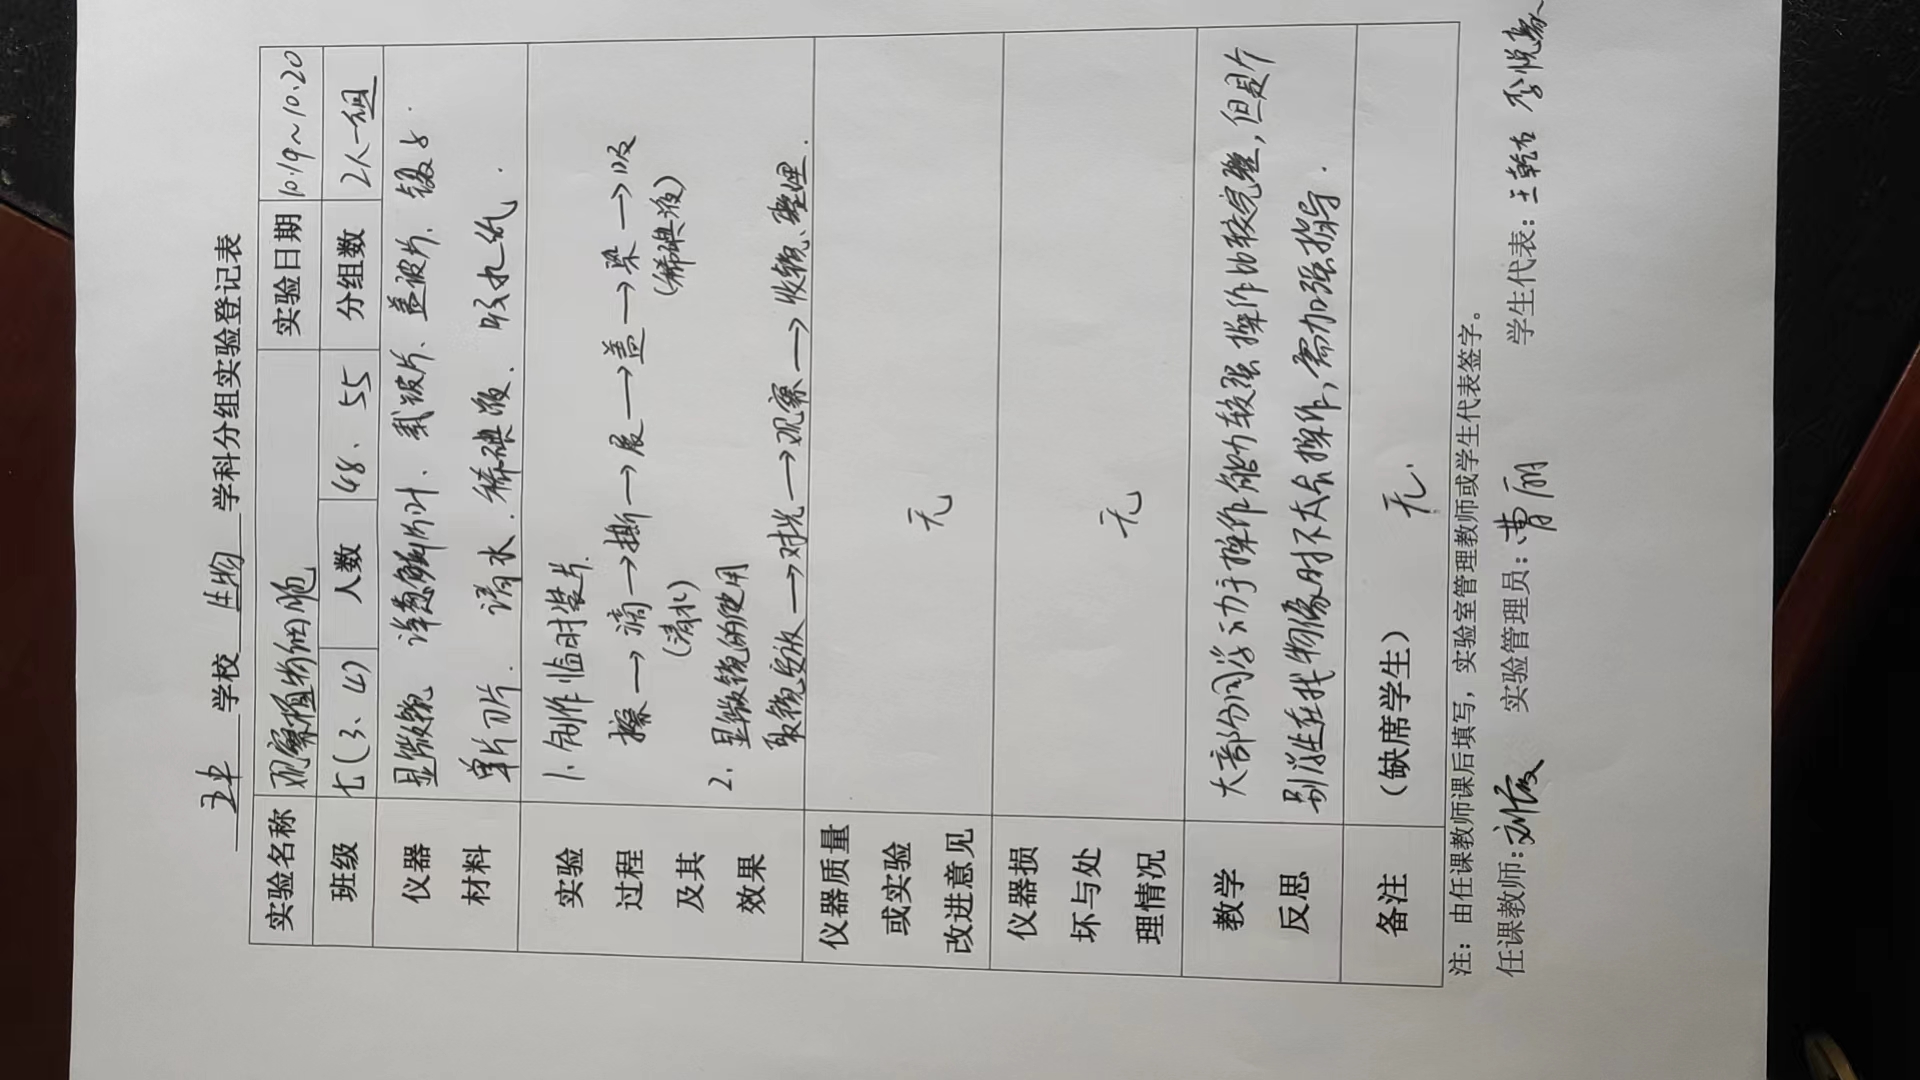 学校 生物 学科分组实验登记表
实验名称 观察植物细胞 实验日期 10.19~10.20
班级 七(3、4) 人数 48、55 分组数 2人一组
仪器材料 显微镜 解剖针、载玻片、盖玻片、镊子.
单片刀片. 清水. 稀碘液、吸水纸.
实验过程及其效果 1. 制作临时装片.
擦→滴→撕→展→盖→染→吸
(清水) (稀碘液)
2. 显微镜的使用
取镜安放→对光→观察→收镜、整理.
仪器质量或实验改进意见 无
仪器损坏与处理情况 无
教学反思 大部分同学动手操作能力较强操作比较完整,但是个
别学生在找物像时不太会操作,需加强指导.
备注 (缺席学生) 无.
注：由任课教师课后填写，实验室管理教师或学生代表签字。
任课教师: 刘霞 实验管理员: 曹丽 学生代表: 王乾 李悦